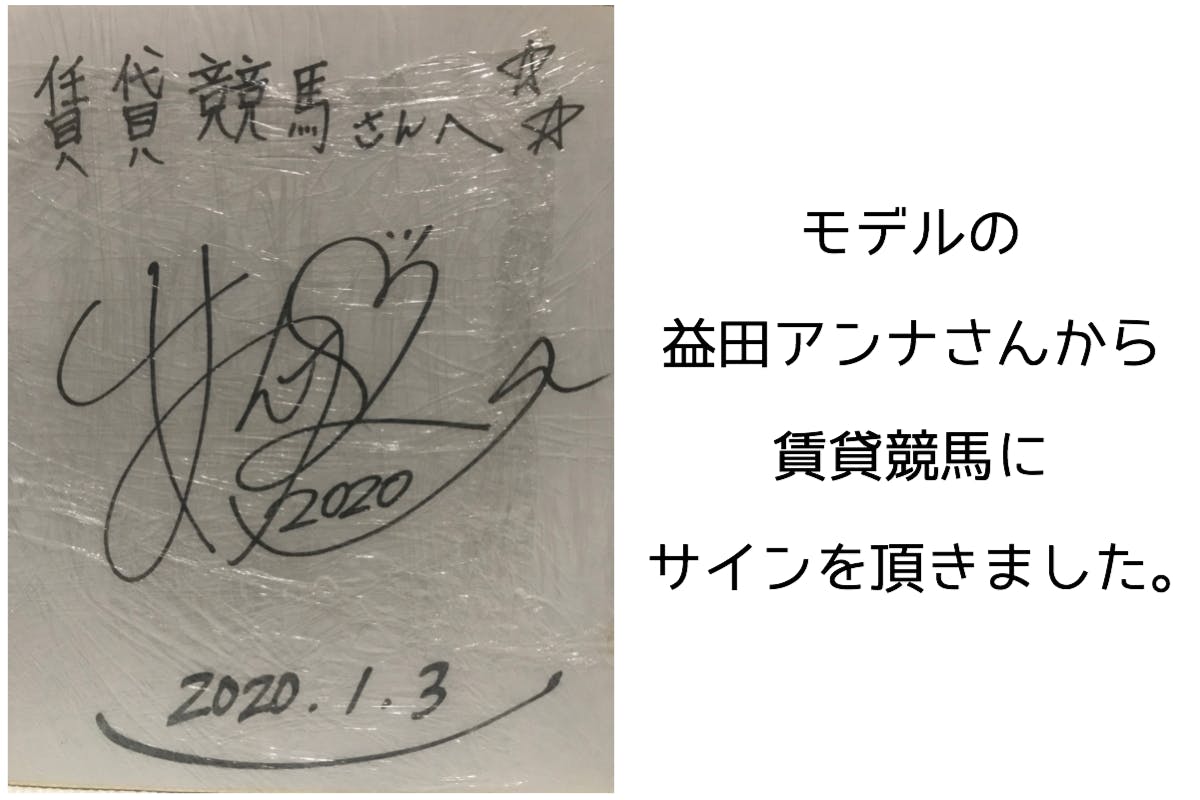 賃貸競馬さんへ☆☆
2020
2020.1.3
モデルの
益田アンナさんから
賃貸競馬に
サインを頂きました。